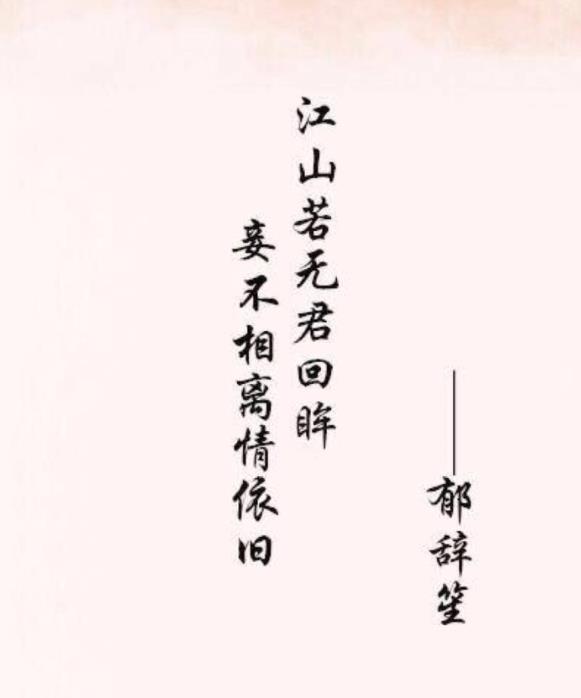 江山若无君回眸
妾不相离情依旧
——郁辞笙